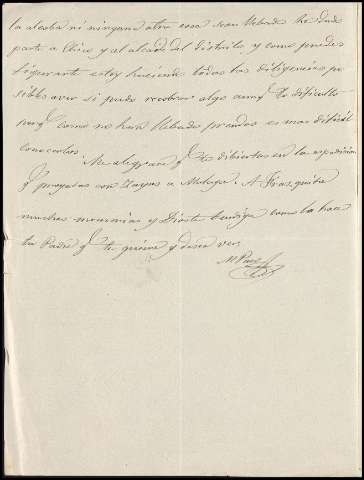 la alcoba ni ninguna otra cosa han llebado he dado
parte a Chico y al alcalde del Distrito y como puedes
figurarte estoy haciendo todas las diligencias po
sibles aver si puedo recobrar algo aunq lo dificulto
porq como no han llebado prendas es mas dificil
conocerlos.
Me alegrare q te dibiertas en la expedicion
q proyectas con a Malaga. A
muchas memorias y Dios te bendiga como lo hace
tu Padre q te quiere y desea ver